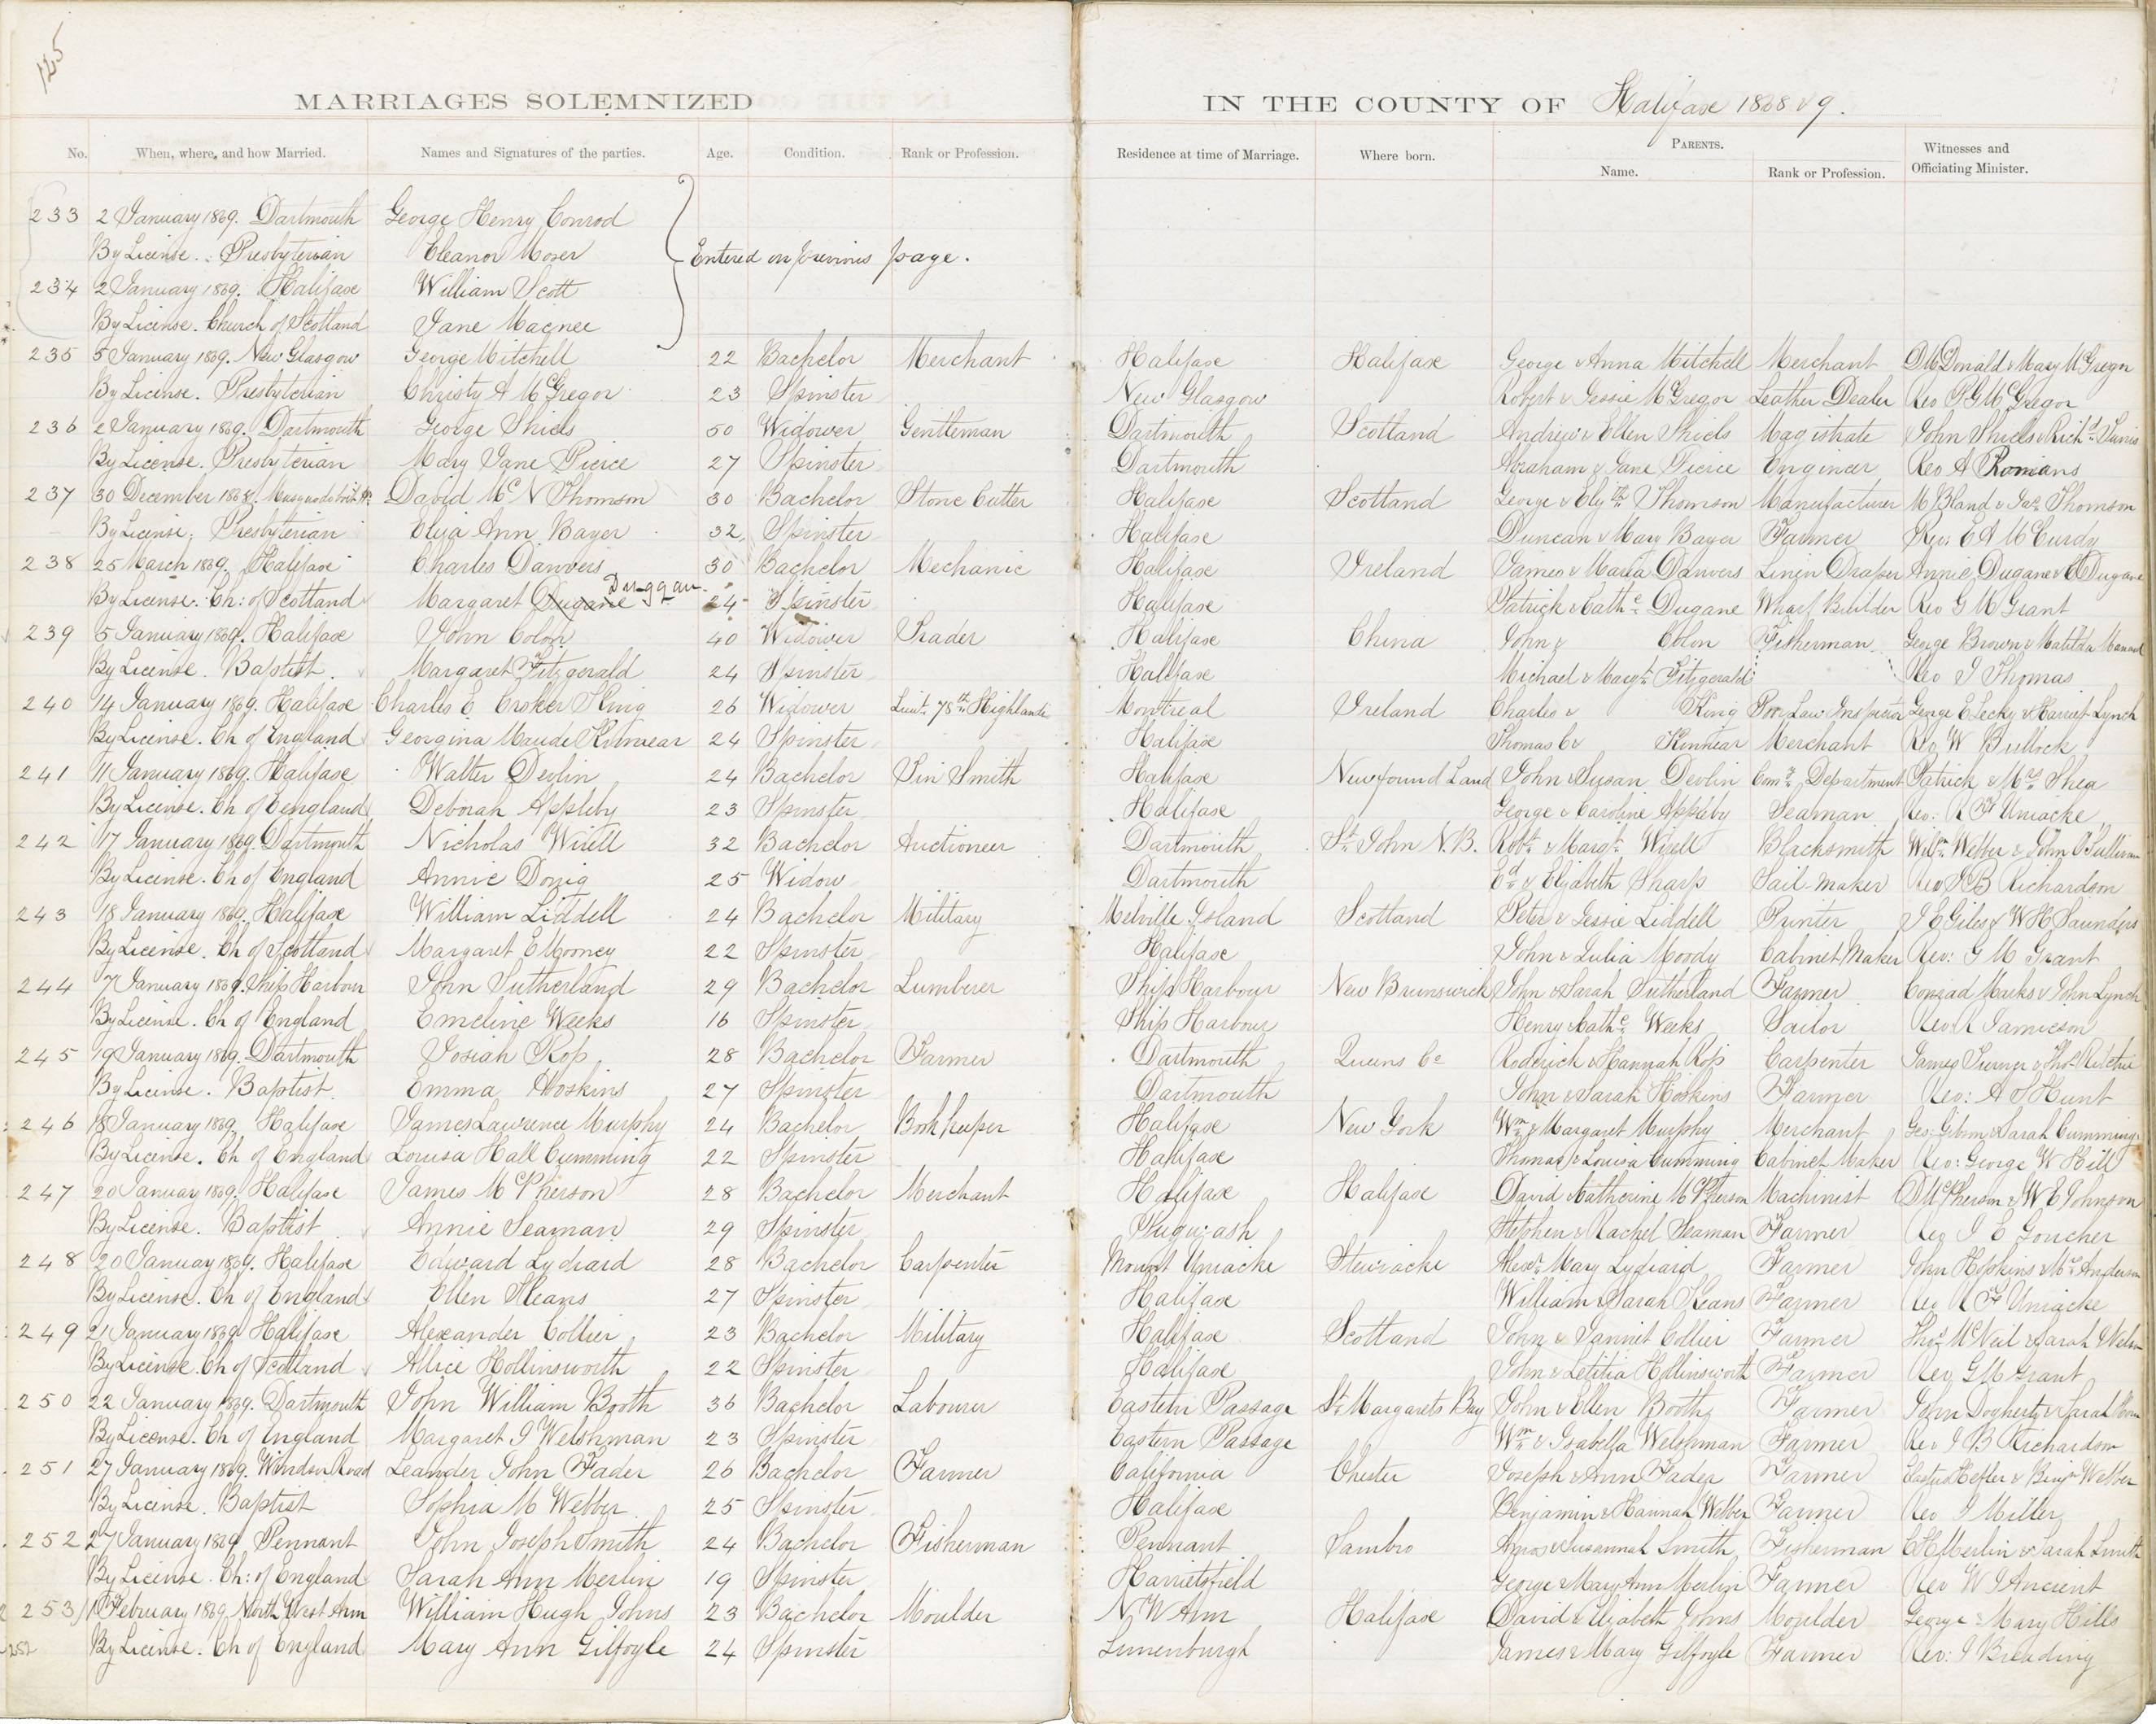 125
MARRIAGES SOLEMNIZED IN THE COUNTY OF Halifax 1868 & 9.
No. When, where, and how Married. Names and Signatures of the parties. Age. Condition. Rank or Profession. Residence at time of Marriage. Where born. PARENTS. Witnesses and
Name. Rank or Profession. Officiating Minister.
233 2 January 1869. Dartmouth George Henry Conrod
By License. Presbyterian Eleanor Moser Entered on previous page.
234 2 January 1869. Halifax William Scott
By License. Church of Scotland Jane Magnee
235 5 January 1869. New Glasgow George Mitchell 22 Bachelor Merchant Halifax Halifax George & Anna Mitchell Merchant D McDonald & Mary McGregor
By License. Presbyterian Christy A McGregor 23 Spinster New Glasgow Robert & Jessie McGregor Leather Dealer Rev P G McGregor
236 2 January 1869. Dartmouth George Shiels 50 Widower Gentleman Dartmouth Scotland Andrew & Ellen Shiels Magistrate John Shiels & Richd
By License. Presbyterian Mary Jane Pierce 27 Spinster Dartmouth Abraham & Jane Pierce Engineer Rev A Romans
237 30 December 1868. David McN Thomson 30 Bachelor Stone Cutter Halifax Scotland George & Elizth Thomson Manufacturer M Bland & Jas Thomson
By License. Presbyterian Eliza Ann Bayer 32 Spinster Halifax Duncan & Mary Bayer Farmer Rev: E A McCurdy
238 25 March 1869. Halifax Charles Danvers 30 Bachelor Mechanic Halifax Ireland James & Maria Danvers Linen Draper Annie Dugane & C Dugane
By License. Ch: of Scotland Margaret Dugane Duggan 24 Spinster Halifax Patrick & Cathe Dugane Wharf Builder Rev G M Grant
239 5 January 1869. Halifax John Colon 40 Widower Trader Halifax China John & Colon Fisherman George Brown & Matilda
By License. Baptist. Margaret Fitzgerald 24 Spinster Halifax Michael & Margt Fitzgerald Rev J Thomas
240 14 January 1869. Halifax Charles E Croker King 26 Widower Lieut 78th Highlands Montreal Ireland Charles & King Poor Law Inspector George E Lecky & Harriet Lynch
By License. Ch of England Georgina Maude Kinnear 24 Spinster Halifax Thomas C & Kinnear Merchant Rev W Bullock
241 11 January 1869. Halifax Walter Devlin 24 Bachelor Tin Smith Halifax Newfound Land John & Susan Devlin Comy Department Patrick & Mrs Shea
By License. Ch of England Deborah Appleby 23 Spinster Halifax George & Caroline Appleby Seaman Rev: R F Uniacke
242 17 January 1869. Dartmouth Nicholas Wisell 32 Bachelor Auctioneer Dartmouth St John N.B. Robt & Margt Wisell Blacksmith Willm Webber & John O'Sullivan
By License. Ch of England Annie Dorig 25 Widow Dartmouth Ed & Elizabeth Sharp Sail maker Rev J B Richardson
243 18 January 1869. Halifax William Liddell 24 Bachelor Military Melville Island Scotland Peter & Jessie Liddell Printer J E Giles & W H Saunders
By License. Ch of Scotland Margaret E Mooney 22 Spinster Halifax John & Julia Moody Cabinet Maker Rev: G M Grant
244 7 January 1869. Ship Harbour John Sutherland 29 Bachelor Lumberer Ship Harbour New Brunswick John & Sarah Sutherland Farmer Conrad Marks & John Lynch
By License. Ch of England Emeline Weeks 16 Spinster Ship Harbour Henry & Cathe Weeks Sailor Rev R Jamieson
245 19 January 1869. Dartmouth Josiah Ross 28 Bachelor Farmer Dartmouth Queens Co Roderick & Hannah Ross Carpenter James Turner & Thos Ritchie
By License. Baptist. Emma Hoskins 27 Spinster Dartmouth John & Sarah Hoskins Farmer Rev: A S Hunt
246 18 January 1869. Halifax James Lawrence Murphy 24 Bachelor Book Keeper Halifax New York Wm & Margaret Murphy Merchant Geo: Gibson & Sarah Cumming
By License. Ch of England Louisa Hall Cumming 22 Spinster Halifax Thomas & Louisa Cumming Cabinet Maker Rev: George W Hill
247 20 January 1869. Halifax James McPherson 28 Bachelor Merchant Halifax Halifax David & Catherine McPherson Machinist D McPherson & W E Johnson
By License. Baptist Annie Seaman 29 Spinster Pugwash Stephen & Rachel Seaman Farmer Rev J E Goucher
248 20 January 1869. Halifax Edward Lydiard 28 Bachelor Carpenter Mount Uniacke Stewiacke Alexr Mary Lydiard Farmer John Hopkins & Mrs Anderson
By License. Ch of England Ellen Keans 27 Spinster Halifax William & Sarah Keans Farmer Rev R F Uniacke
249 21 January 1869 Halifax Alexander Collier 23 Bachelor Military Halifax Scotland John & Jannet Collier Farmer Thos McNeil & Sarah
By License. Ch of Scotland Allice Hollinsworth 22 Spinster Halifax John & Letitia Hollinsworth Farmer Rev G M Grant
250 22 January 1869. Dartmouth John William Booth 36 Bachelor Labourer Eastern Passage St Margarets Bay John & Ellen Booth Farmer John Dogherty & Sarah
By License. Ch of England Margaret J Welshman 23 Spinster Eastern Passage Wm & Isabella Welshman Farmer Rev J B Richardson
251 27 January 1869. Windsor Road Leander John Fader 26 Bachelor Farmer California Chester Joseph & Ann Fader Farmer Hefler & Benjn Webber
By License. Baptist Sophia M Webber 25 Spinster Halifax Benjamin & Hannah Webber Farmer Rev J Miller
252 27 January 1869 Pennant John Joseph Smith 24 Bachelor Fisherman Pennant Sambro Amos & Susannah Smith Fisherman E H Merlin & Sarah Smith
By License. Ch: of England Sarah Ann Merlin 19 Spinster Harrietsfield George & Mary Ann Merlin Farmer Rev W J Ancient
253 1 February 1869, North West Arm William Hugh Johns 23 Bachelor Moulder N W Arm Halifax David & Elizabeth Johns Moulder George & Mary Hills
252 By License. Ch of England Mary Ann Gilfoyle 24 Spinster Lunenburgh James & Mary Gilfoyle Farmer Rev: J Breading